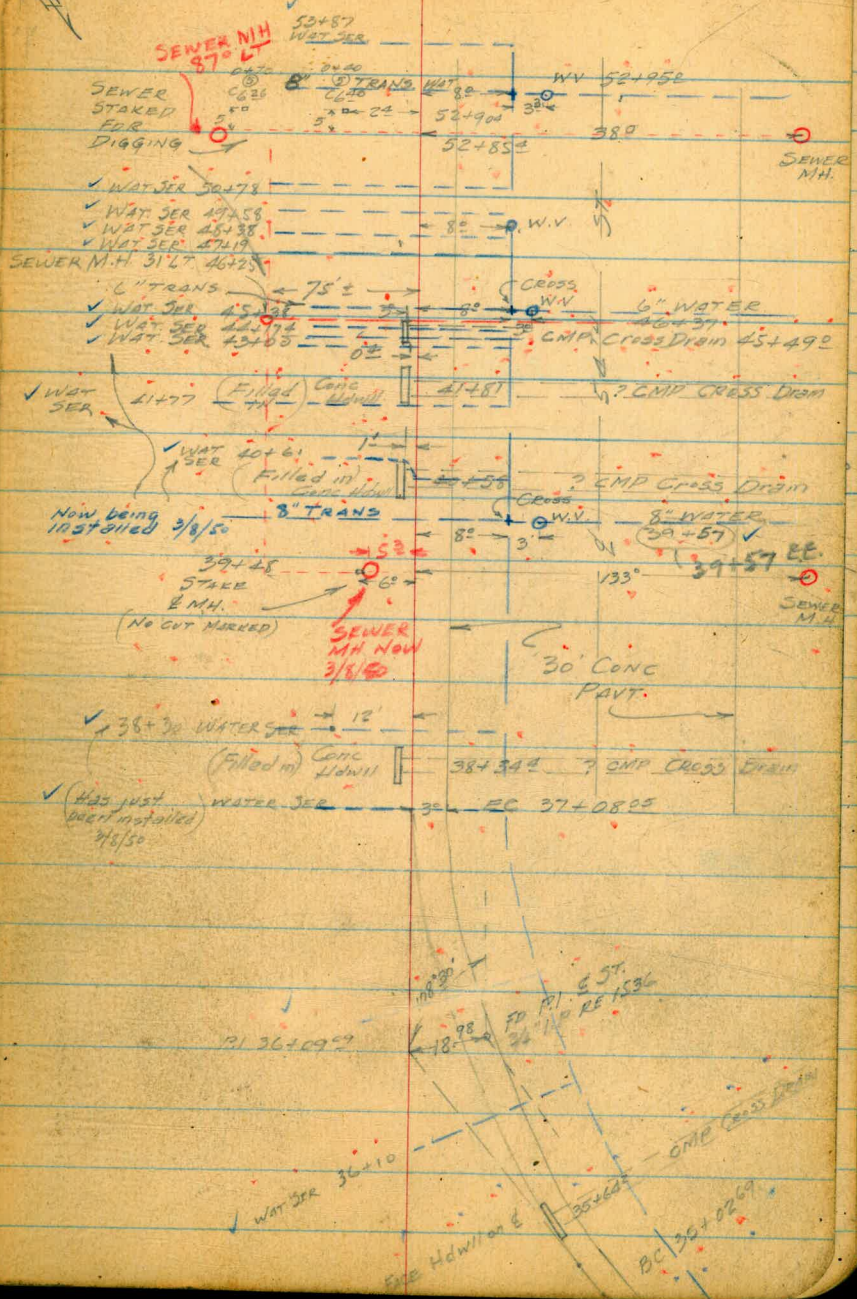 53+87
WAT SER
SEWER MH
87° LT
SEWER
STAKED
FOR
DIGGING
8" TRANS WAT
24
8°
52+904
W.V. 52+95°
52+854
38°
SEWER
M.H.
✓ WAT SER 50+78
✓ WAT. SER 49+58
✓ WAT SER 48+38
✓ WAT SER 47+19
8° W.V.
ST
SEWER M.H 31' LT 46+25
6" TRANS 75' ±
CROSS
W.V
✓ WAT. SER 45+38
8°
6" WATER
46+37
✓ WAT SER 44+74
✓ WAT SER 43+03
CMP. Cross Drain 45+49°
✓ WAT
SER 41+77 (Filled in) Conc
Hdwll 41+81 ? CMP CROSS Drain
1'
✓ WAT 40+61
SER
(Filled in)
Conc Hdwl 40+58 ? CMP Cross Drain
Now being
installed 3/8/50
8" TRANS
CROSS
W.V.
8" WATER
(39+57) ✓
8° 3'
39+57 E.E.
39+48
STAKE
℄ M.H.
(NO CUT MARKED)
6°
✓33°
SEWER
M.H.
SEWER
MH NOW
3/8/50
30' CONC
PAVT.
✓ 38+30 WATER SER 12'
(Filled in) Conc
Hdwll 38+344 ? CMP CROSS Drain
✓ (Has just
been installed)
3/8/50
WATER SER 3° EC 37+0805
P.I. 36+09
18.98
FD P.I. ℄ ST.
3/4" I.P RE 1536
✓ WAT SER 36+10
CMP CROSS DRAIN
35+64
Face Hdwll on ℄
BC 35+0269